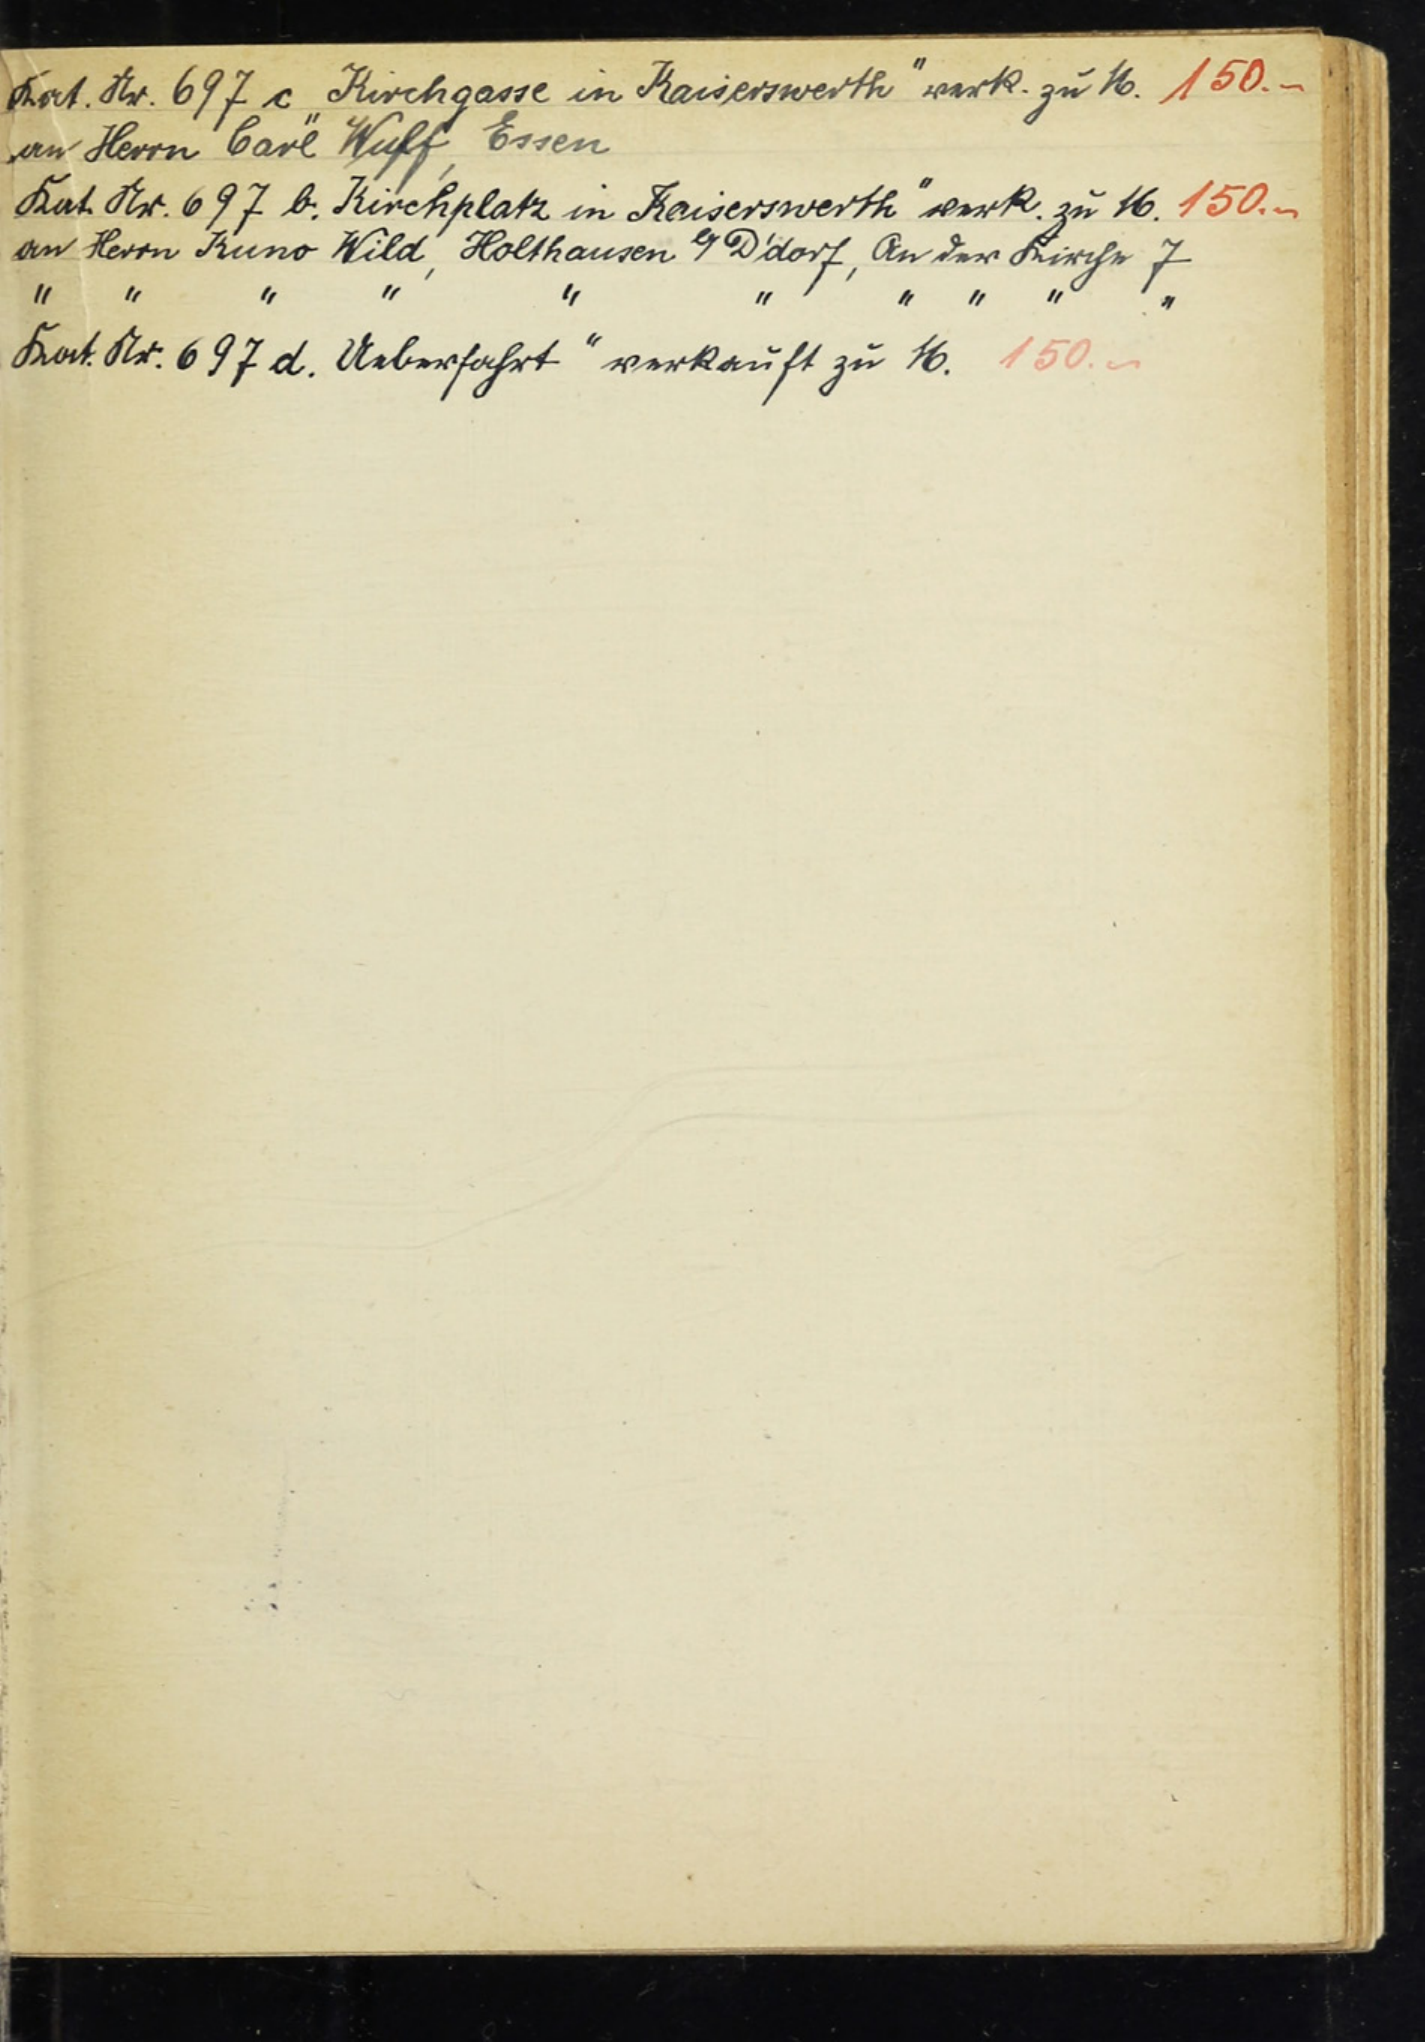 Kat. Nr. 697 c „Kirchgasse in Kaiserswerth" verk. zu M. 150.-
an Herrn Carl Wulff, Essen
Kat. Nr. 697 b. Kirchplatz in Kaiserswerth" verk. zu M. 150.-
an Herrn Kuno Wild, Holthausen b/ D'dorf, An der Kirche 7
" " " " " " " " " "
Kat. Nr. 697 d. Ueberfahrt" verkauft zu M. 150.-